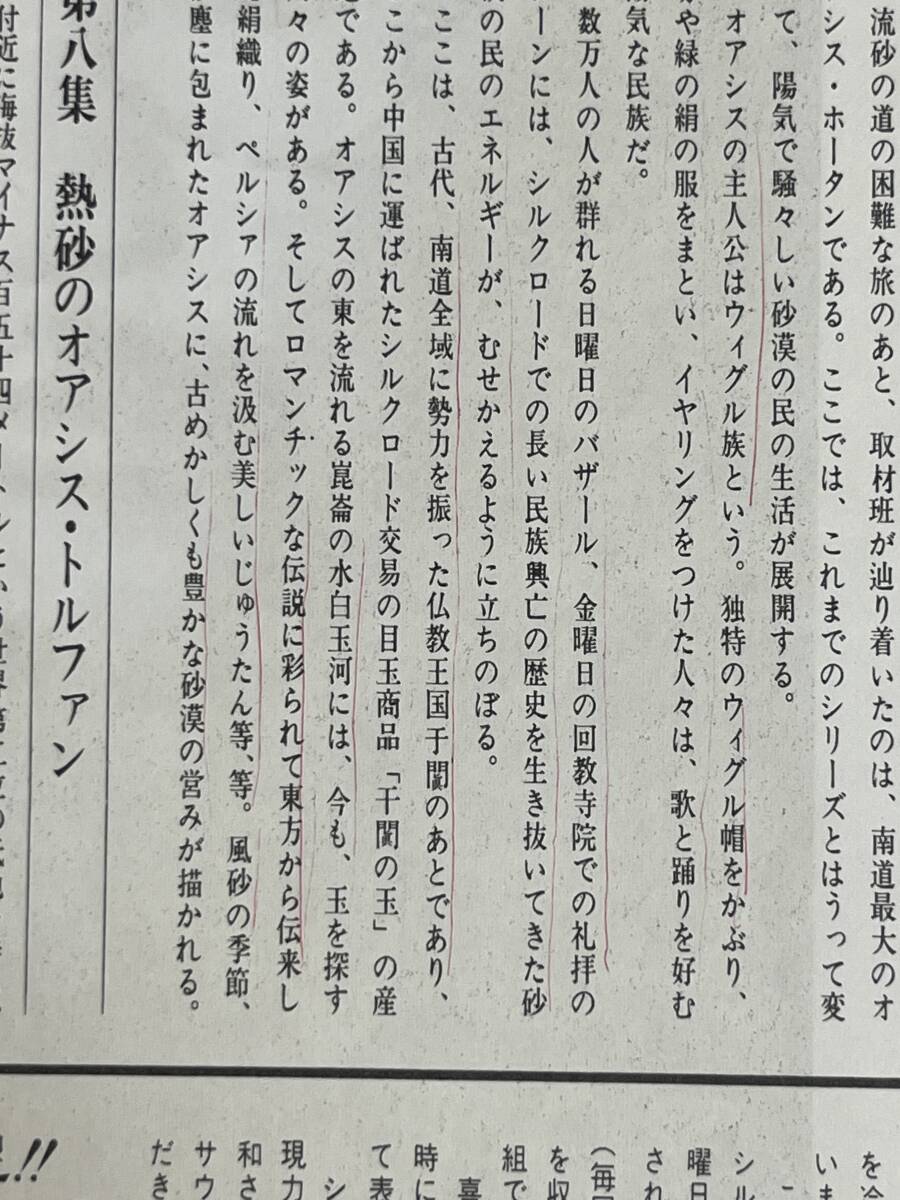 流砂の道の困難な旅のあと、取材班が辿り着いたのは、南道最大のオ
シス・ホータンである。ここでは、これまでのシリーズとはうって変
て、陽気で騒々しい砂漠の民の生活が展開する。
オアシスの主人公はウィグル族という。独特のウィグル帽をかぶり、
や緑の絹の服をまとい、イヤリングをつけた人々は、歌と踊りを好む
気な民族だ。
数万人の人が群れる日曜日のバザール、金曜日の回教寺院での礼拝の
ーンには、シルクロードでの長い民族興亡の歴史を生き抜いてきた砂
の民のエネルギーが、むせかえるように立ちのぼる。
ここは、古代、南道全域に勢力を振った仏教王国于闐のあとであり、
こから中国に運ばれたシルクロード交易の目玉商品「于闐の玉」の産
である。オアシスの東を流れる崑崙の水白玉河には、今も、玉を探す
々の姿がある。そしてロマンチックな伝説に彩られて東方から伝来し
絹織り、ペルシアの流れを汲む美しいじゅうたん等、等。風砂の季節、
塵に包まれたオアシスに、古めかしくも豊かな砂漠の営みが描かれる。
第八集 熱砂のオアシス・トルファン
付近に海抜マイナス百五十四メートルという世界第二位の
を
いま
シル
曜日
され
（毎
を収
組で
喜
時に
て表
シ
現力
和さ
サウ
だき
!!